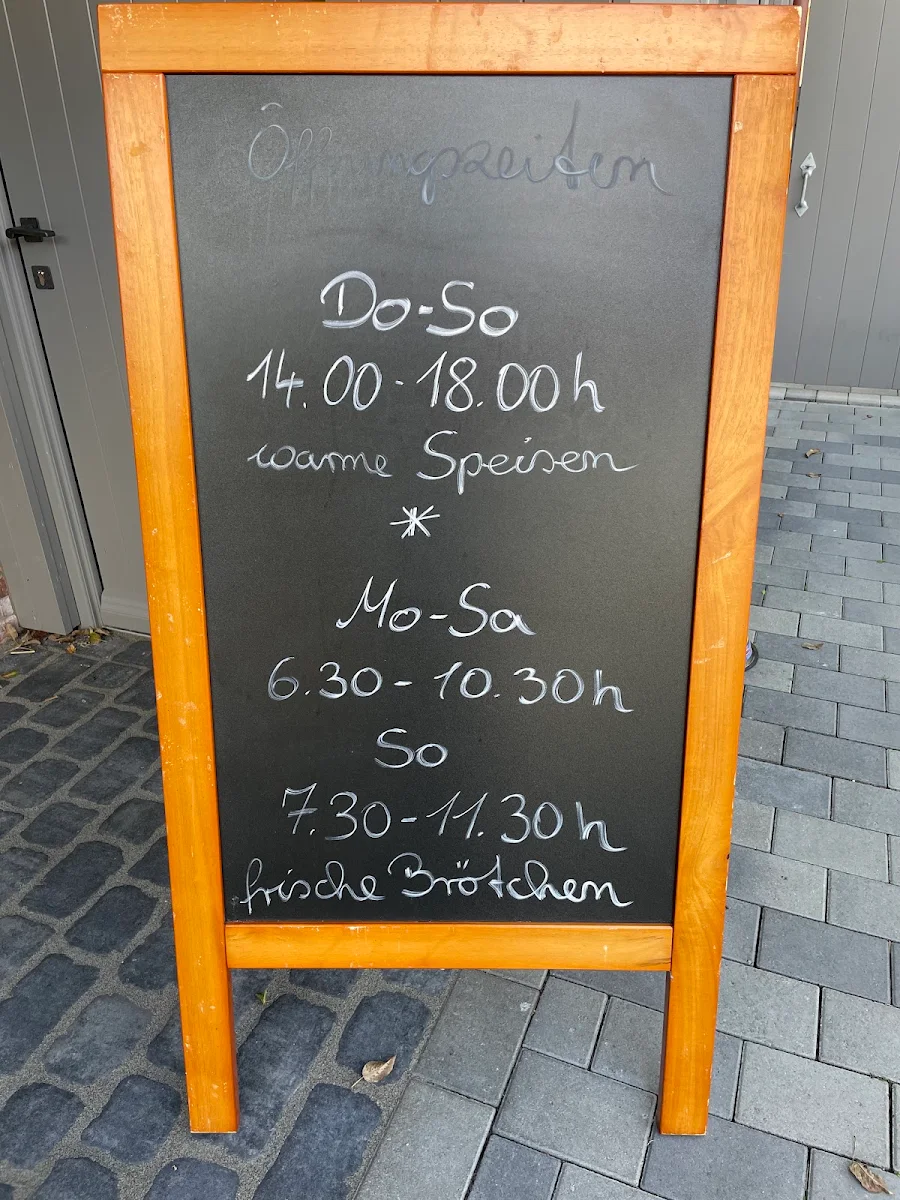 Öffnungszeiten
Do-So
14.00-18.00h
warme Speisen
*
Mo-Sa
6.30-10.30h
So
7.30-11.30h
frische Brötchen